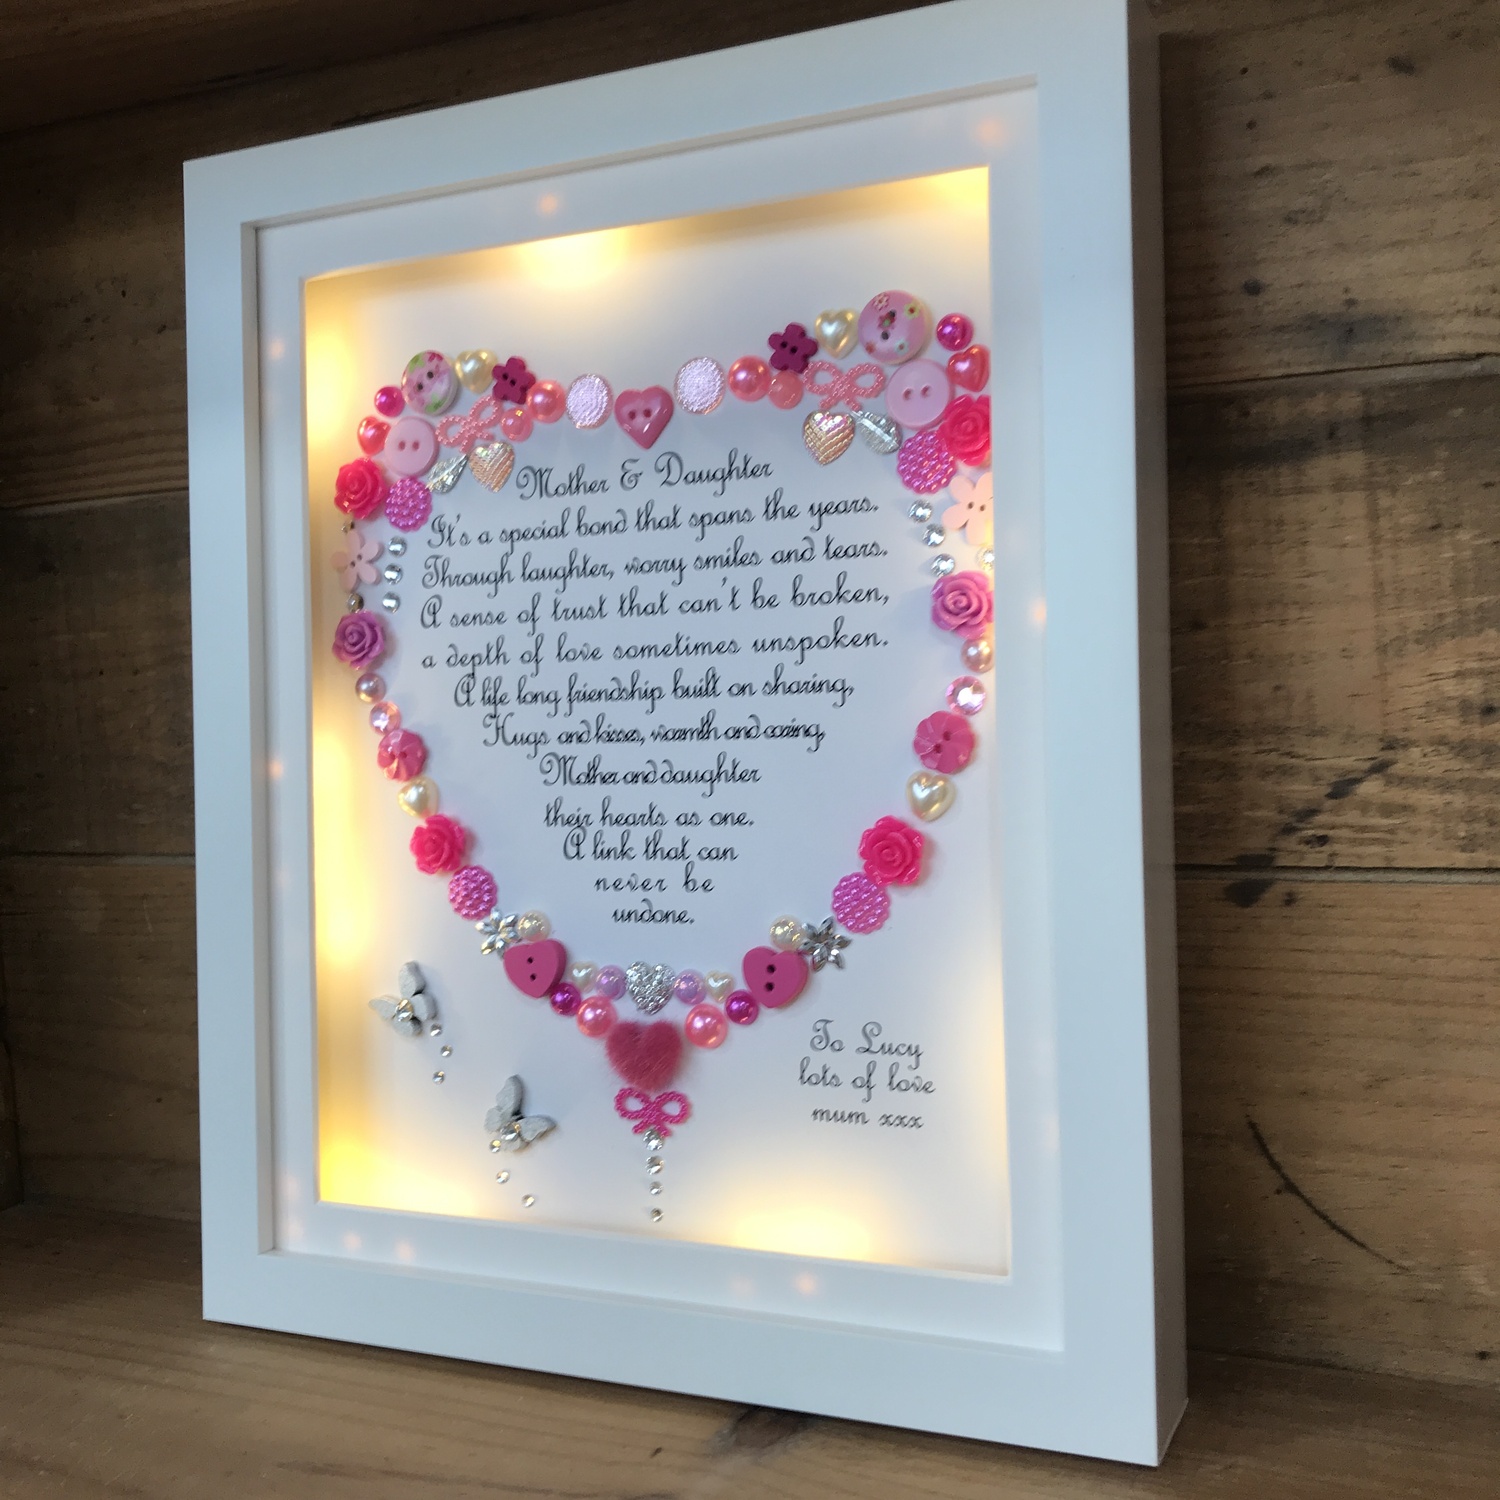 Mother & Daughter
It's a special bond that spans the years.
Through laughter, worry smiles and tears.
A sense of trust that can't be broken,
a depth of love sometimes unspoken.
A life long friendship built on sharing,
Hugs and kisses, warmth and caring,
Mother and daughter
their hearts as one.
A link that can
never be
undone.
To Lucy
lots of love
mum xxx